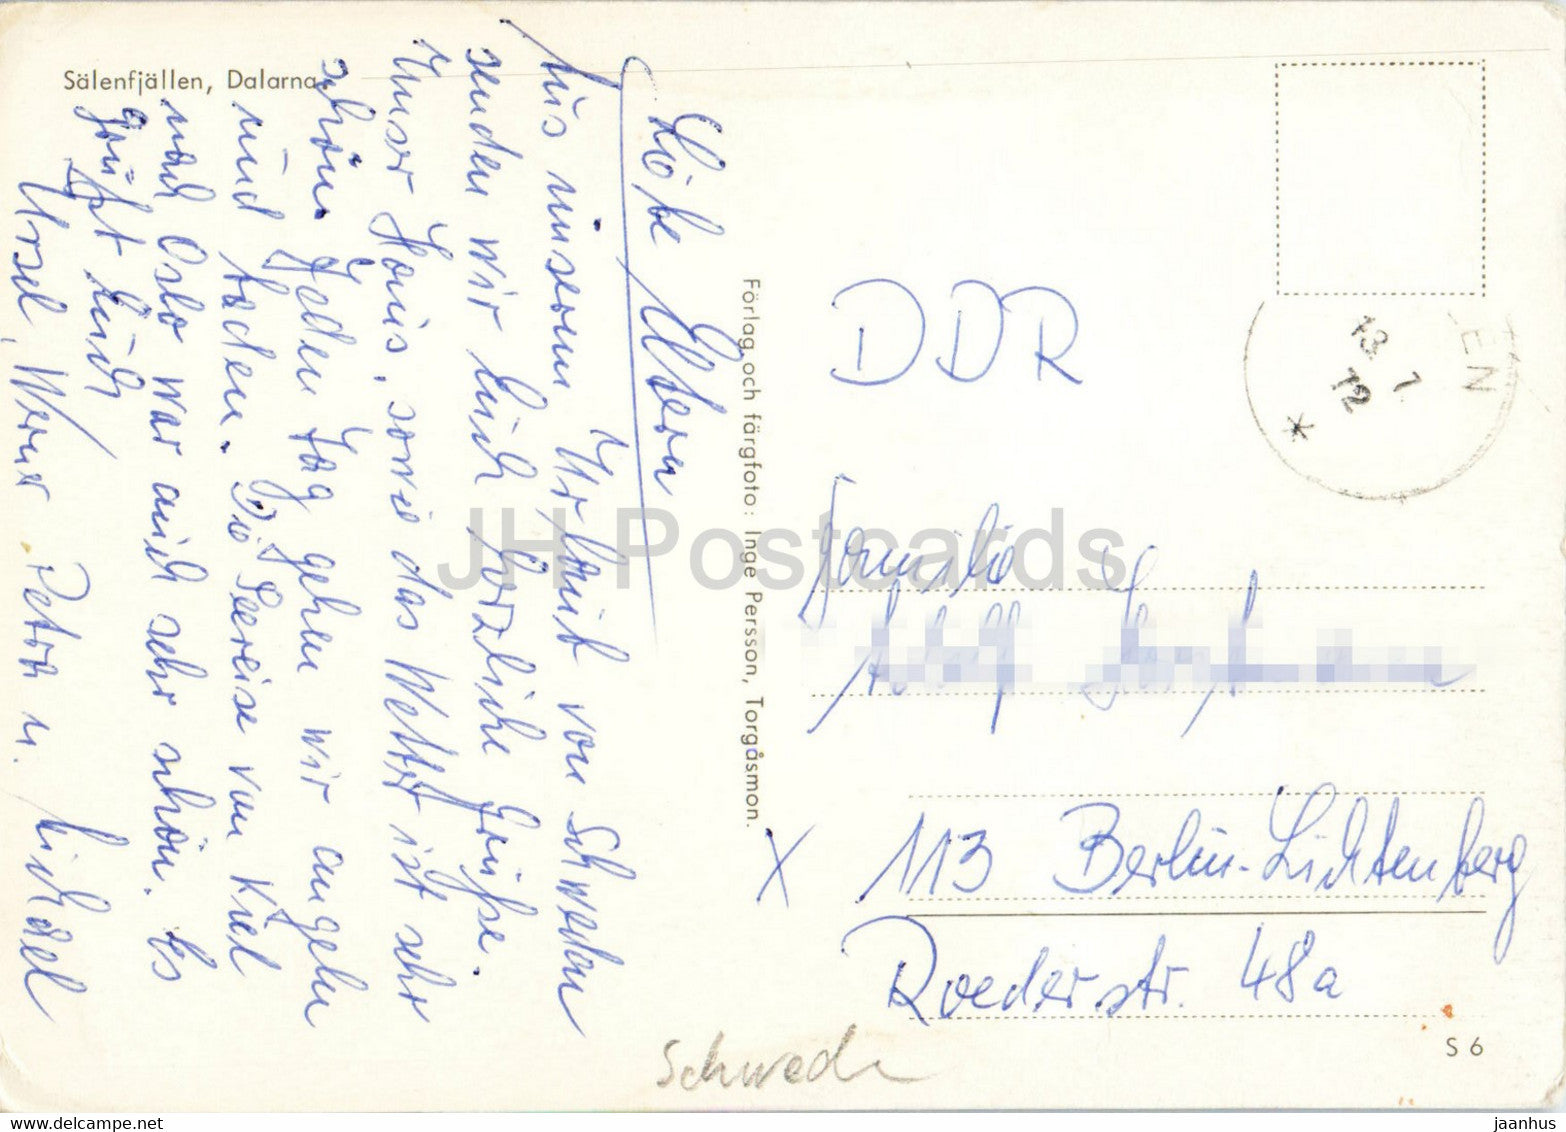 Sälenfjällen, Dalarna.
Liebe Eltern
Aus unserem Urlaub von Schweden
senden wir Euch herzliche Grüße.
Unser Haus, sowie das Wetter ist sehr
schön. Jeden Tag gehen wir angeln
und baden. Die Seereise von Kiel
nach Oslo war auch sehr schön. Es
grüßt Euch
Ursel, Werner Petra u. Michael
Förlag och färgfoto: Inge Persson, Torgåsmon.
EN
13 7
72
DDR
Familie
X 113 Berlin-Lichtenberg
Roederstr. 48a
S 6
Schwede
JH Postcards
www.delcampe.net
jaanhus